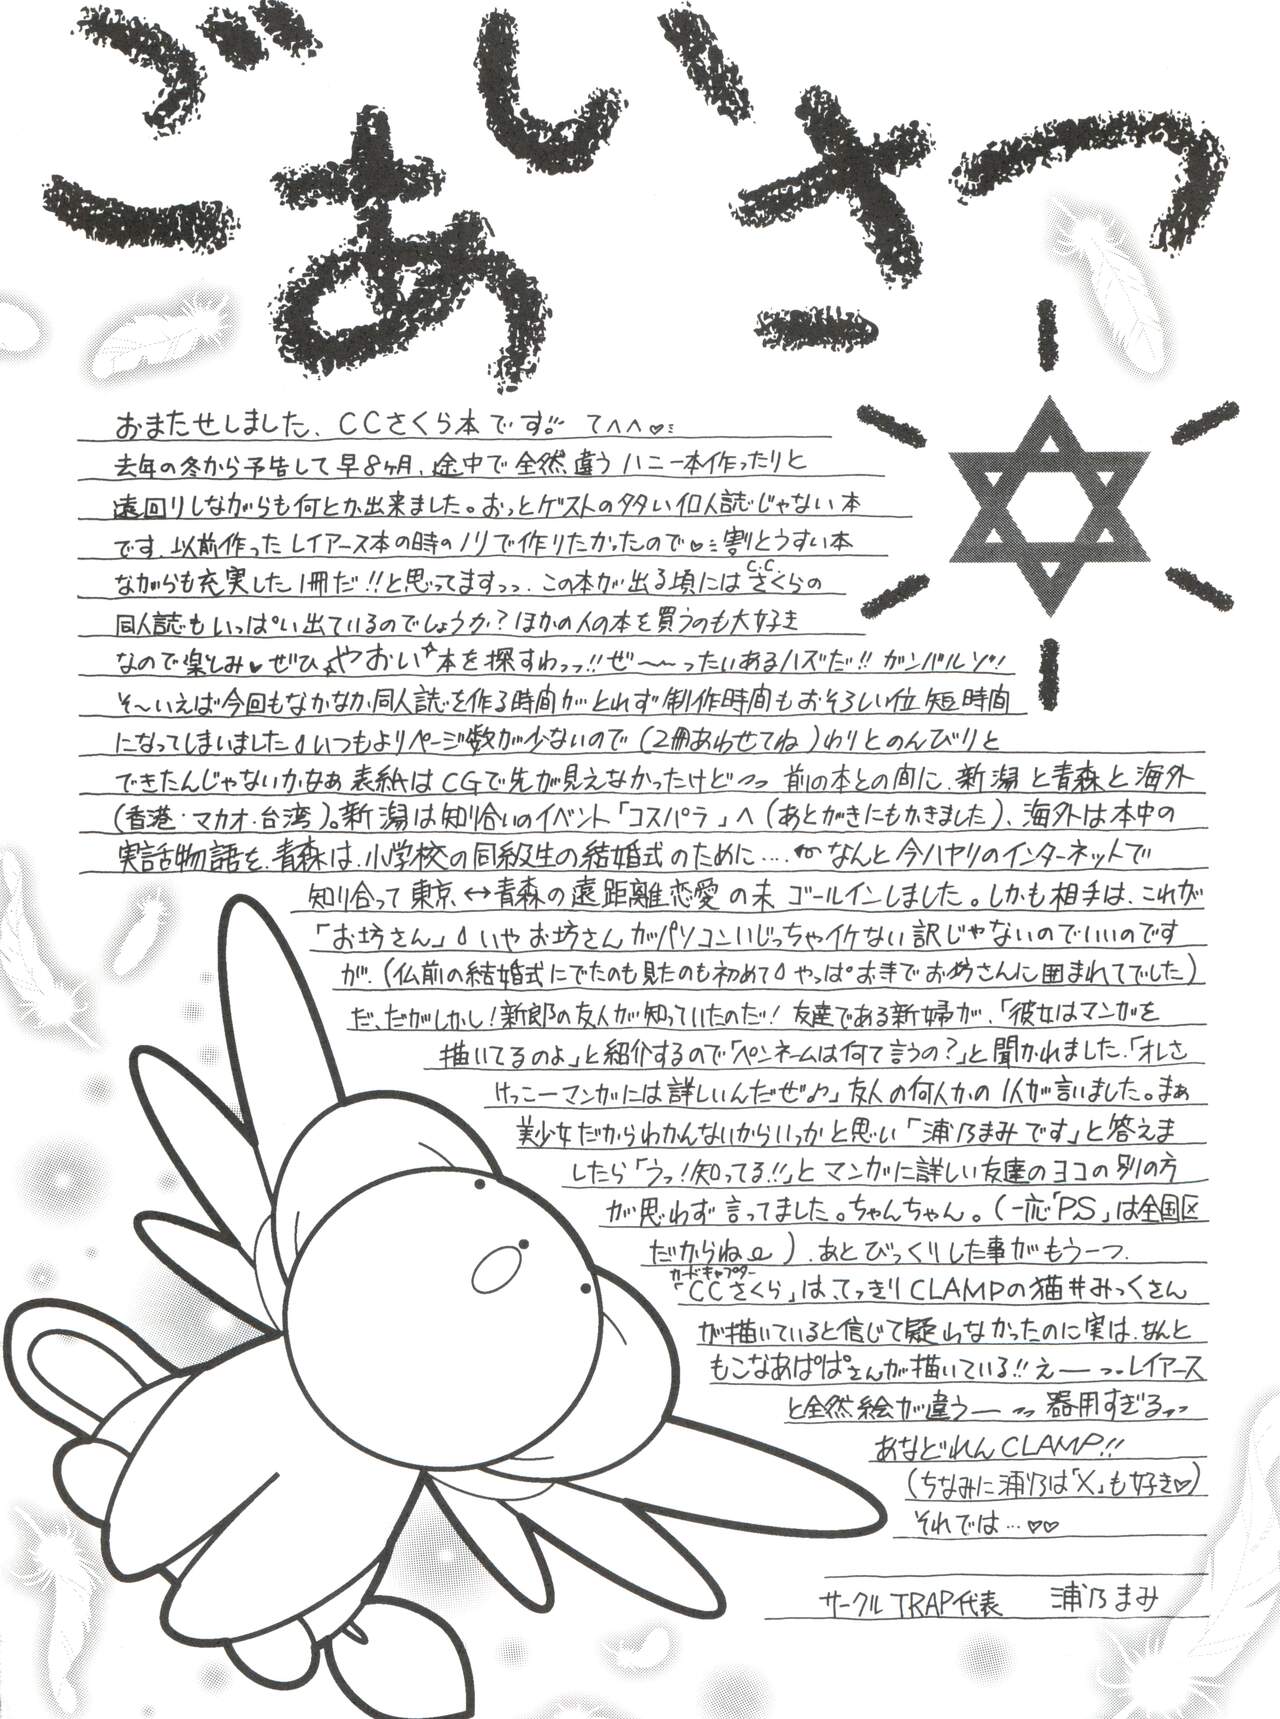 ごあいさつ
おまたせしました、CCさくら本です!! てへへ♡
去年の冬から予告して早8ヶ月、途中で全然違うハニー本作ったりと
遠回りしながらも何とか出来ました。おっとゲストの多い個人誌じゃない本
です、以前作ったレイアース本の時のノリで作りたかったので♡割とうすい本
ながらも充実した1冊だ!!と思ってますっっ、この本が出る頃にはC.C.さくらの
同人誌もいっぱい出ているのでしょうか?ほかの人の本を買うのも大好き
なので楽しみ♥ぜひ☆やおい☆本を探すわっっ!!ぜ〜〜ったいあるハズだ!!ガンバルゾ!
そ〜いえば今回もなかなか同人誌を作る時間がとれず制作時間もおそろしい位短時間
になってしまいましたいつもよりページ数が少ないので(2冊あわせてね)わりとのんびりと
できたんじゃないかなぁ表紙はCGで先が見えなかったけどっっ前の本との間に、新潟と青森と海外
(香港・マカオ・台湾)。新潟は知り合いのイベント「コスパラ」へ(あとがきにもかきました)、海外は本中の
実話物語を、青森は、小学校の同級生の結婚式のために‥‥なんと今ハヤリのインターネットで
知り合って東京↔青森の遠距離恋愛の末ゴールインしました。しかも相手は、これが
「お坊さん」いやお坊さんがパソコンいじっちゃイケない訳じゃないのでいいのです
が、(仏前の結婚式にでたのも見たのも初めてやっぱお寺でお坊さんに囲まれてでした)
だ、だがしかし!新郎の友人が知っていたのだ!友達である新婦が、「彼女はマンガを
描いてるのよ」と紹介するので「ペンネームは何て言うの?」と聞かれました、「オレさ
けっこーマンガには詳しいんだぜ♪」友人の何人かの1人が言いました。まぁ
美少女だからわかんないからいっかと思い「浦乃まみです」と答えま
したら「うっ!知ってる!!」とマンガに詳しい友達のヨコの別の方
が思わず言ってました。ちゃんちゃん。(一応「PS」は全国区
だからね)、あとびっくりした事がもう一つ、
「CCさくら」は、てっきりCLAMPの猫井みっくさん
カードキャプター
が描いていると信じて疑わなかったのに実は、なんと
もこなあぱぱさんが描いている!!えーーっっレイアース
と全然絵が違うーーっっ器用すぎるっっ
あなどれんCLAMP!!
(ちなみに浦乃は「X」も好き♡)
それでは…♡♡
サークルTRAP代表 浦乃まみ